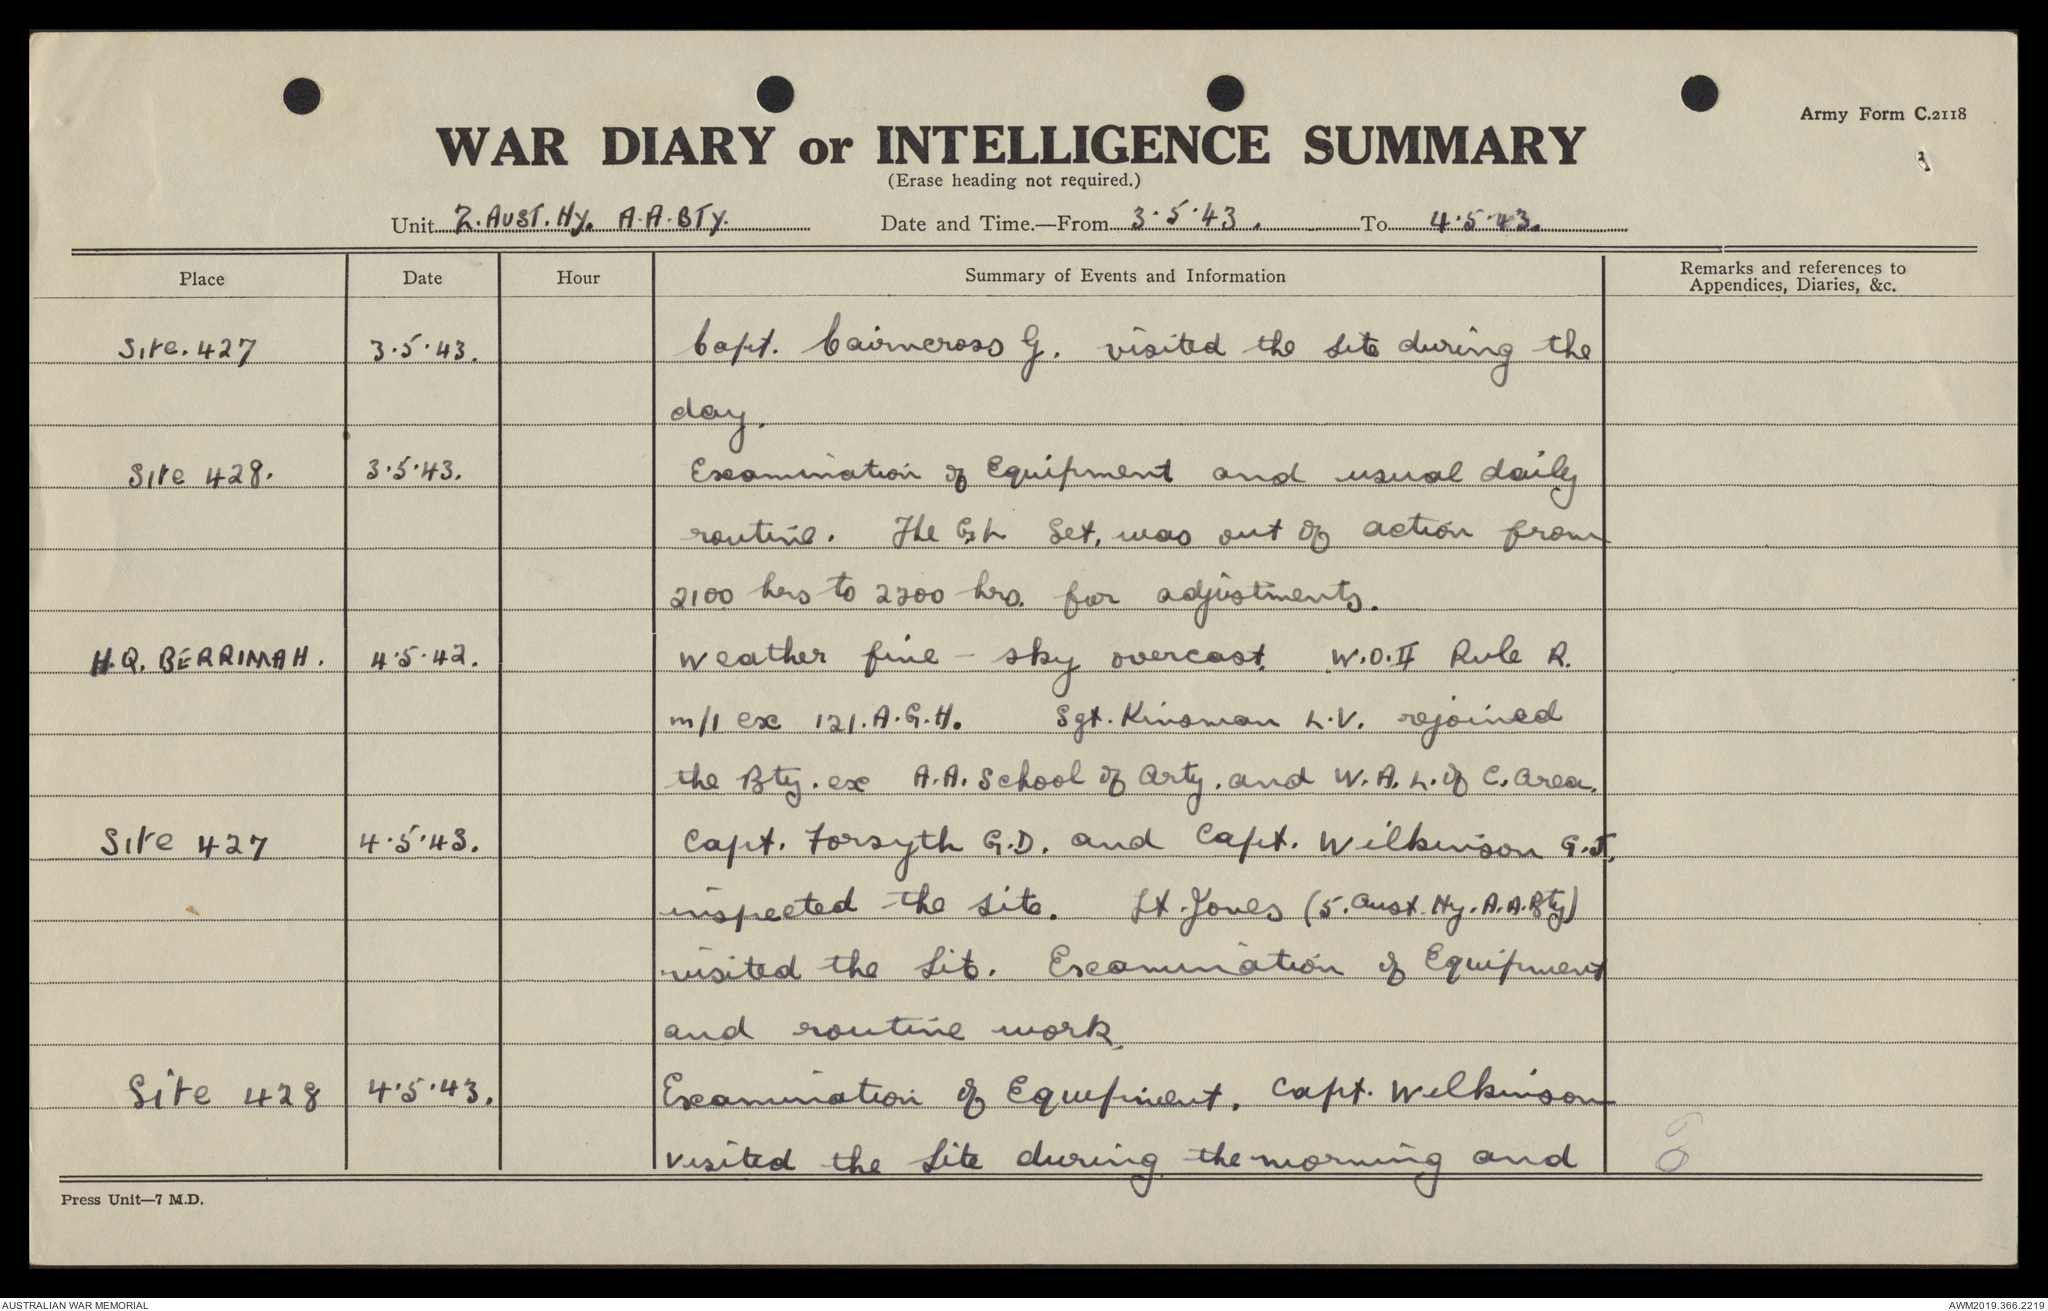 Army Form C.2118
WAR DIARY or INTELLIGENCE SUMMARY
(Erase heading not required.)
Unit 2. AUST. Hy. A.A. BTy. Date and Time.—From 3.5.43. To 4.5.43.
Place Date Hour Summary of Events and Information Remarks and references to
Appendices, Diaries, &c.
Site. 427 3.5.43. Capt. Cairncross G. visited the site during the
day.
Site 428. 3.5.43. Examination of Equipment and usual daily
routine. The G.L Set, was out of action from
2100 hrs to 2200 hrs. for adjustments.
H.Q. BERRIMAH. 4.5.42. Weather fine - sky overcast. W.O.II Rule R.
m/1 ex 121. A.G.H. Sgt. Kinsman L.V. rejoined
the Bty. ex A.A. School of Arty. and W.A. L. of C. Area.
Site 427 4.5.43. Capt. Forsyth G.D. and Capt. Wilkinson G.J.
inspected the site. Lt. Jones (5. Aust. Hy. A.A. Bty)
visited the Site. Examination of Equipment
and routine work.
Site 428 4.5.43. Examination of Equipment. Capt. Wilkinson
visited the Site during the morning and
Press Unit—7 M.D.
AUSTRALIAN WAR MEMORIAL AWM2019.366.2219